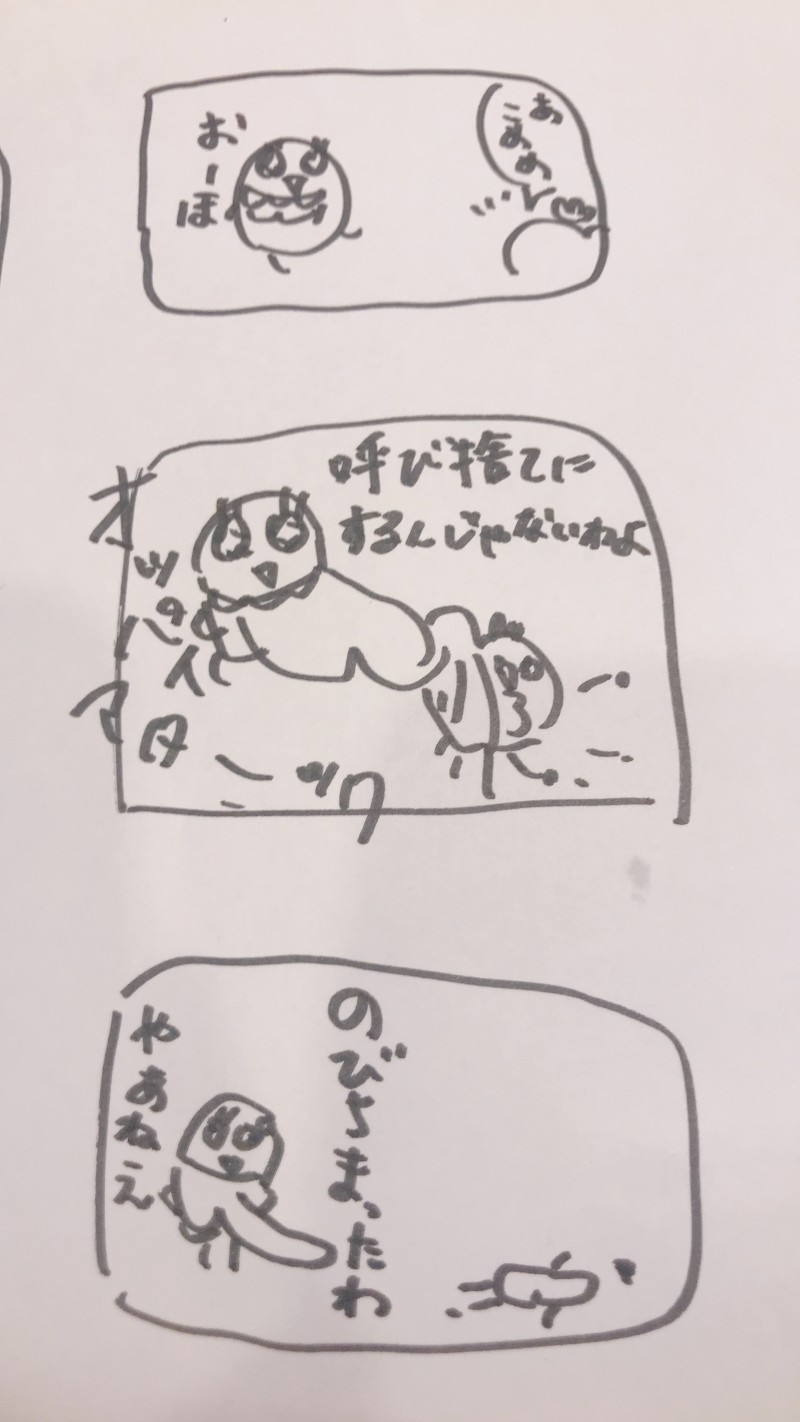 あ
こあめ
おーほ
呼び捨てに
するんじゃないわよ
オッパイ
アターック
のびちまったわ
やあねえ